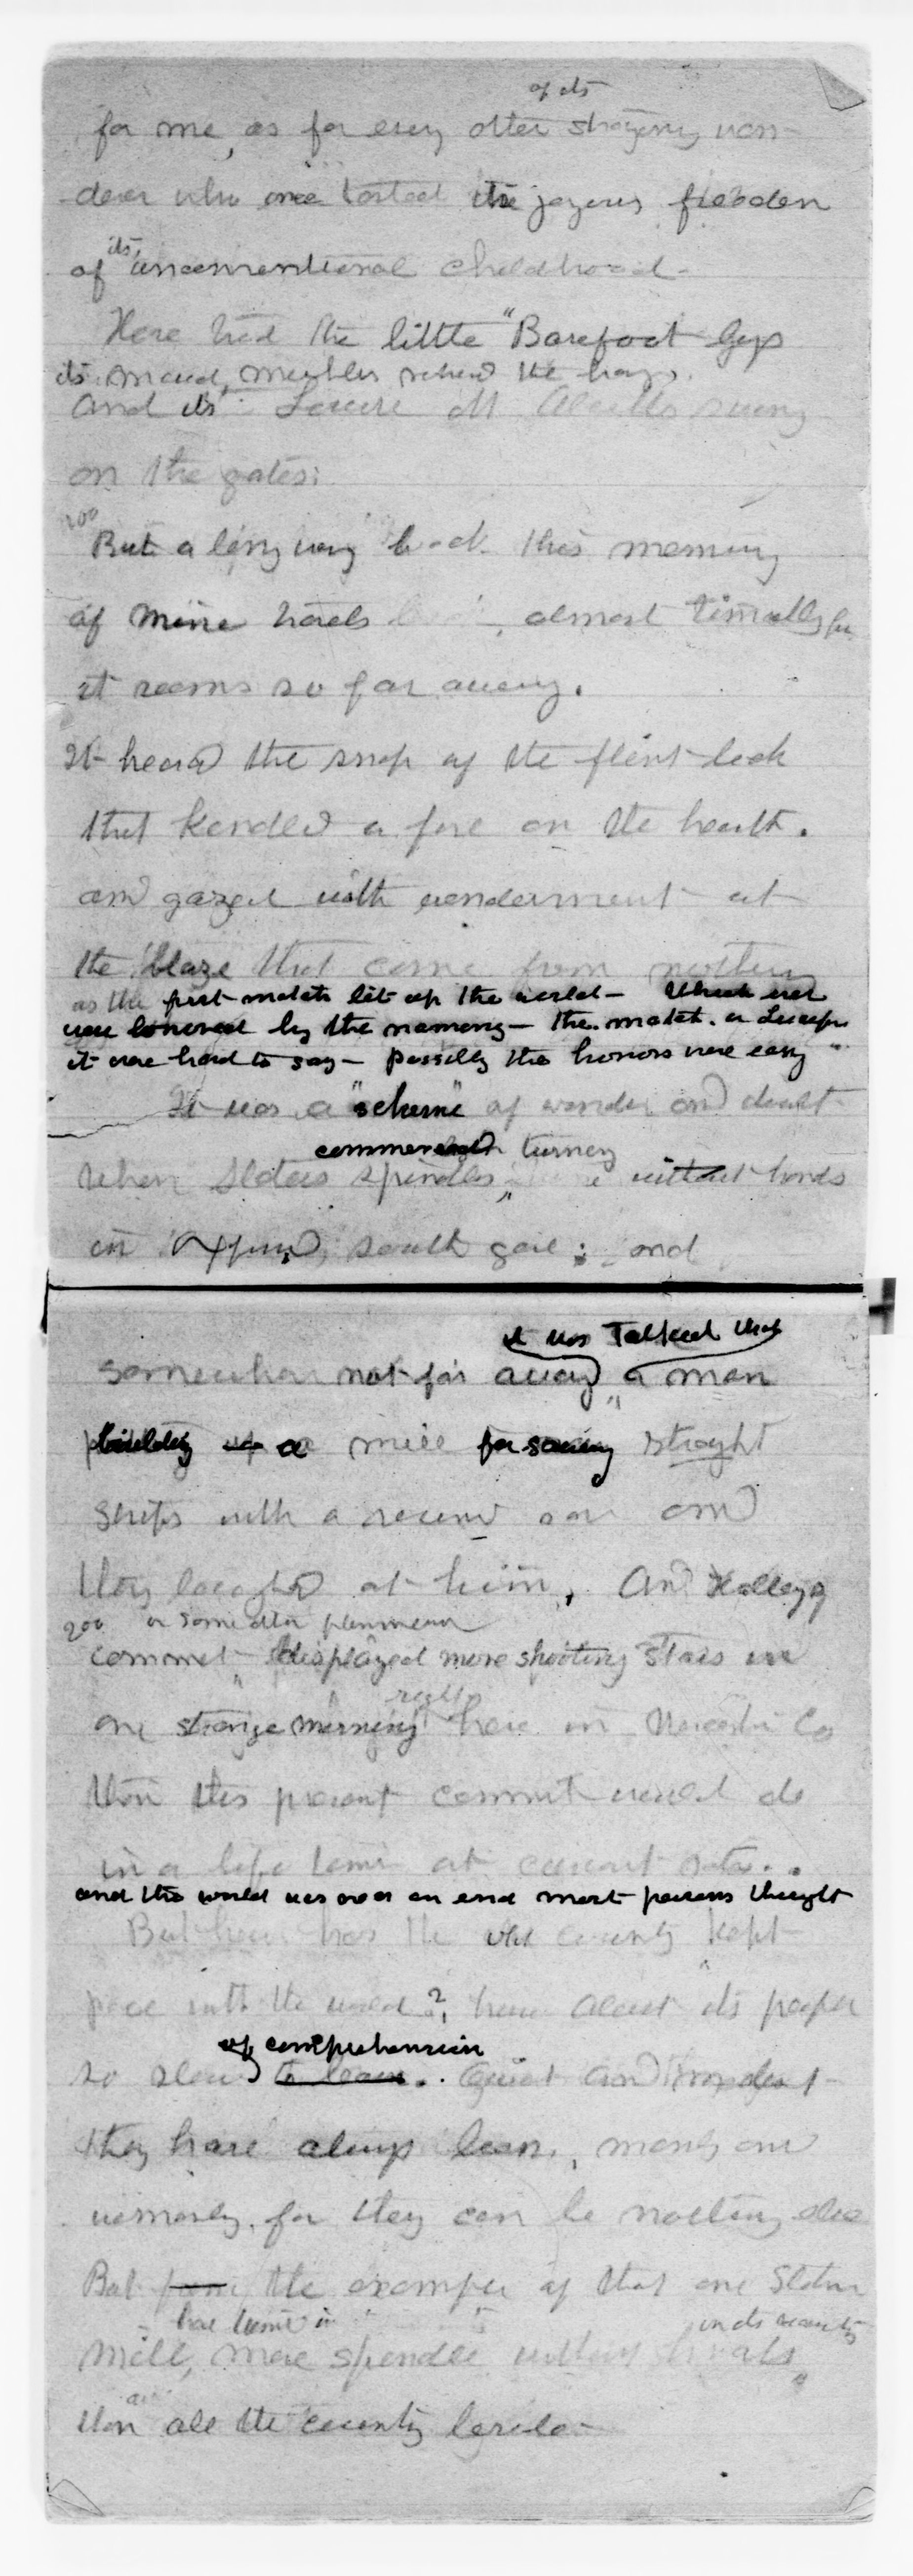 of its
for me, as for every other straying wan-
derer who once tasted the joyous freedom
its
of unconventional childhood-
Here hid the little "Barefoot boys
its maud mullers raked the hay,
and its Louise M Alcotts swung
on the gates:
200
But a long way back this memory
of mine hails, almost
it seems so far away.
It heard the snap of the flint lock
that kindled a fire on the hearth.
and gazed with wonderment at
the blaze that came from nothing
as the first match lit up the world-
by the memory - the match. or
it were hard to say - possibly the honors were easy
It was a "scheme" of wonder and doubt
commenced turning
when Slaters spindles, without hands
in Oxford, south gore; and
it was Talked that
somewhere not far away a man
building a mill for sawing straght
strips with a round saw and
they laughed at him, And Halleys
200 or some other phenomenon
commet displayed more shooting stars in
right
one strange morning here in Worcester Co
than this present commet would do
in a life time at current rates..
and the world was near an end most persons thought
But how has the old county kept
pace with the world? how about its people
of comprehension
so slow to learn. Quiet and modest
they have always been, men and
women, for they can be nothing else
But from the example of that one Slater
have come in
mill, more spindles without
than all the county